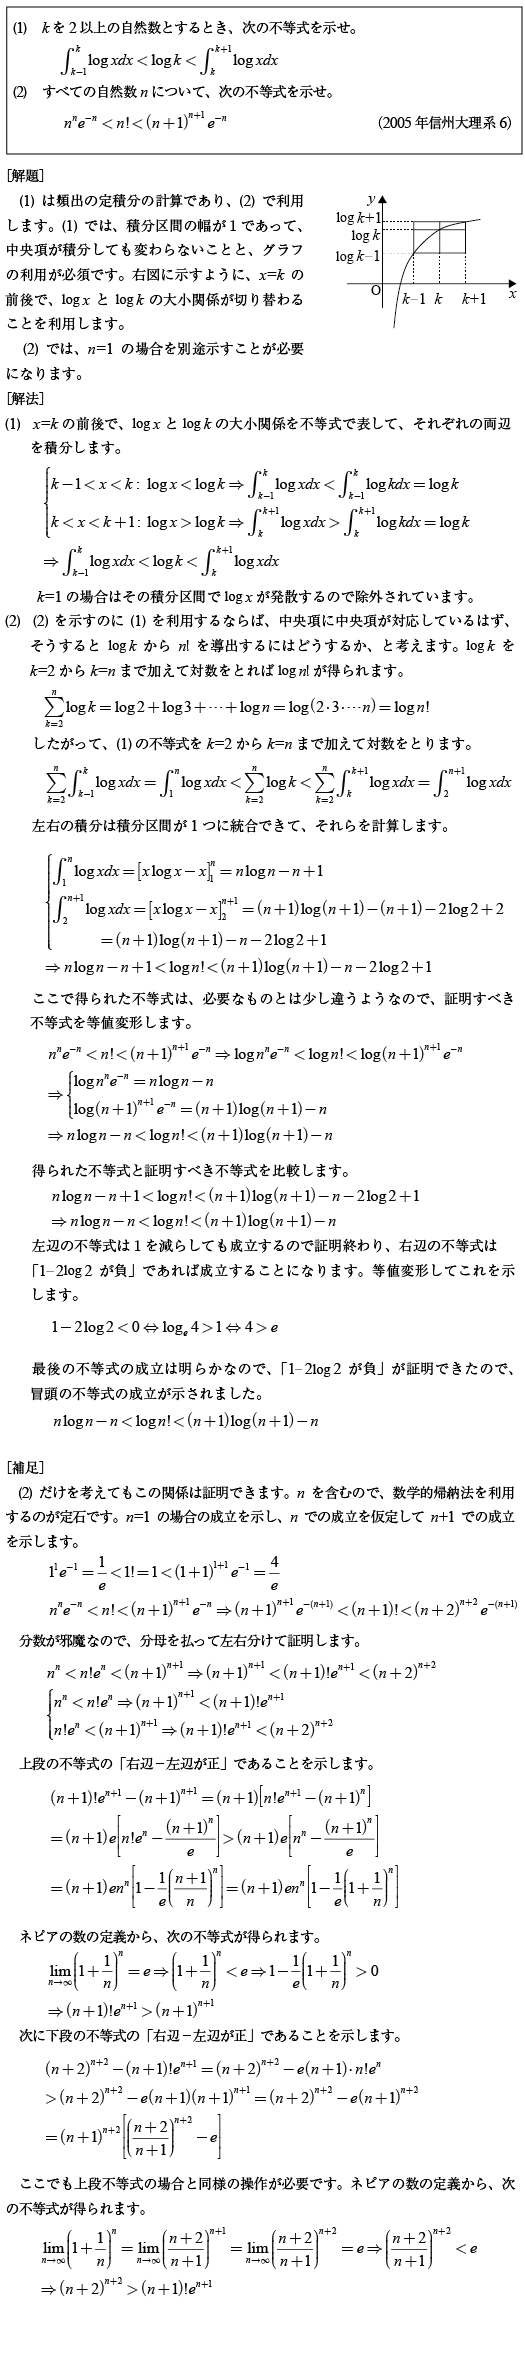 (1) kを2以上の自然数とするとき、次の不等式を示せ。
∫_{k−1}^{k} log xdx < log k < ∫_{k}^{k+1} log xdx
(2) すべての自然数nについて、次の不等式を示せ。
n^n e^{−n} < n! < (n+1)^{n+1} e^{−n} (2005年信州大理系6)
[解題]
(1) は頻出の定積分の計算であり、(2) で利用
します。(1) では、積分区間の幅が1であって、
中央項が積分しても変わらないことと、グラフ
の利用が必須です。右図に示すように、x=kの
前後で、log x と log k の大小関係が切り替わる
ことを利用します。
(2) では、n=1 の場合を別途示すことが必要
になります。
y
log k+1
log k
log k−1
O
k−1 k k+1
x
[解法]
(1) x=kの前後で、log x と log k の大小関係を不等式で表して、それぞれの両辺
を積分します。
{ k−1<x<k: log x<log k ⇒ ∫_{k−1}^{k} log xdx < ∫_{k−1}^{k} log kdx = log k
k<x<k+1: log x>log k ⇒ ∫_{k}^{k+1} log xdx > ∫_{k}^{k+1} log kdx = log k
⇒ ∫_{k−1}^{k} log xdx < log k < ∫_{k}^{k+1} log xdx
k=1の場合はその積分区間で log x が発散するので除外されています。
(2) (2) を示すのに (1) を利用するならば、中央項に中央項が対応しているはず、
そうすると log k から n! を導出するにはどうするか、と考えます。log k を
k=2から k=n まで加えて対数をとれば log n! が得られます。
∑_{k=2}^{n} log k = log 2 + log 3 + ⋯ + log n = log(2・3・⋯・n) = log n!
したがって、(1) の不等式を k=2 から k=n まで加えて対数をとります。
∑_{k=2}^{n} ∫_{k−1}^{k} log xdx = ∫_{1}^{n} log xdx < ∑_{k=2}^{n} log k < ∑_{k=2}^{n} ∫_{k}^{k+1} log xdx = ∫_{2}^{n+1} log xdx
左右の積分は積分区間が1つに統合できて、それらを計算します。
{ ∫_{1}^{n} log xdx = [x log x − x]_{1}^{n} = n log n − n + 1
∫_{2}^{n+1} log xdx = [x log x − x]_{2}^{n+1} = (n+1)log(n+1) − (n+1) − 2log 2 + 2
= (n+1)log(n+1) − n − 2log 2 + 1
⇒ n log n − n + 1 < log n! < (n+1)log(n+1) − n − 2log 2 + 1
ここで得られた不等式は、必要なものとは少し違うようなので、証明すべき
不等式を等値変形します。
n^n e^{−n} < n! < (n+1)^{n+1} e^{−n} ⇒ log n^n e^{−n} < log n! < log(n+1)^{n+1} e^{−n}
⇒ { log n^n e^{−n} = n log n − n
log(n+1)^{n+1} e^{−n} = (n+1)log(n+1) − n
⇒ n log n − n < log n! < (n+1)log(n+1) − n
得られた不等式と証明すべき不等式を比較します。
n log n − n + 1 < log n! < (n+1)log(n+1) − n − 2log 2 + 1
⇒ n log n − n < log n! < (n+1)log(n+1) − n
左辺の不等式は1を減らしても成立するので証明終わり、右辺の不等式は
「1−2log 2 が負」であれば成立することになります。等値変形してこれを示
します。
1 − 2log 2 < 0 ⇔ log_e 4 > 1 ⇔ 4 > e
最後の不等式の成立は明らかなので、「1−2log 2 が負」が証明できたので、
冒頭の不等式の成立が示されました。
n log n − n < log n! < (n+1)log(n+1) − n
[補足]
(2) だけを考えてもこの関係は証明できます。n を含むので、数学的帰納法を利用
するのが定石です。n=1 の場合の成立を示し、n での成立を仮定して n+1 での成立
を示します。
1^1 e^{−1} = 1/e < 1! = 1 < (1+1)^{1+1} e^{−1} = 4/e
n^n e^{−n} < n! < (n+1)^{n+1} e^{−n} ⇒ (n+1)^{n+1} e^{−(n+1)} < (n+1)! < (n+2)^{n+2} e^{−(n+1)}
分数が邪魔なので、分母を払って左右分けて証明します。
n^n < n!e^n < (n+1)^{n+1} ⇒ (n+1)^{n+1} < (n+1)!e^{n+1} < (n+2)^{n+2}
{ n^n < n!e^n ⇒ (n+1)^{n+1} < (n+1)!e^{n+1}
n!e^n < (n+1)^{n+1} ⇒ (n+1)!e^{n+1} < (n+2)^{n+2}
上段の不等式の「右辺−左辺が正」であることを示します。
(n+1)!e^{n+1} − (n+1)^{n+1} = (n+1)[n!e^{n+1} − (n+1)^n]
= (n+1)e[n!e^n − (n+1)^n/e] > (n+1)e[n^n − (n+1)^n/e]
= (n+1)en^n[1 − 1/e((n+1)/n)^n] = (n+1)en^n[1 − 1/e(1+1/n)^n]
ネピアの数の定義から、次の不等式が得られます。
lim_{n→∞}(1+1/n)^n = e ⇒ (1+1/n)^n < e ⇒ 1 − 1/e(1+1/n)^n > 0
⇒ (n+1)!e^{n+1} > (n+1)^{n+1}
次に下段の不等式の「右辺−左辺が正」であることを示します。
(n+2)^{n+2} − (n+1)!e^{n+1} = (n+2)^{n+2} − e(n+1)・n!e^n
> (n+2)^{n+2} − e(n+1)(n+1)^{n+1} = (n+2)^{n+2} − e(n+1)^{n+2}
= (n+1)^{n+2}[((n+2)/(n+1))^{n+2} − e]
ここでも上段不等式の場合と同様の操作が必要です。ネピアの数の定義から、次
の不等式が得られます。
lim_{n→∞}(1+1/n)^n = lim_{n→∞}((n+2)/(n+1))^{n+1} = lim_{n→∞}((n+2)/(n+1))^{n+2} = e ⇒ ((n+2)/(n+1))^{n+2} < e
⇒ (n+2)^{n+2} > (n+1)!e^{n+1}